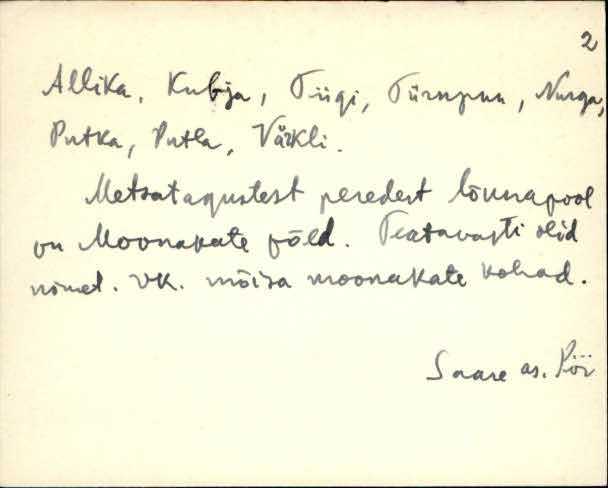 2
Allika, Kubja, Tiigi, Türnpuu, Nurga,
Putka, Putla, Värkli.
Metsatagustest peredest lõunapool
on Moonakate põld. Teatavasti olid
nimet. vk. mõisa moonakate kohad.
Saare as. Pöi